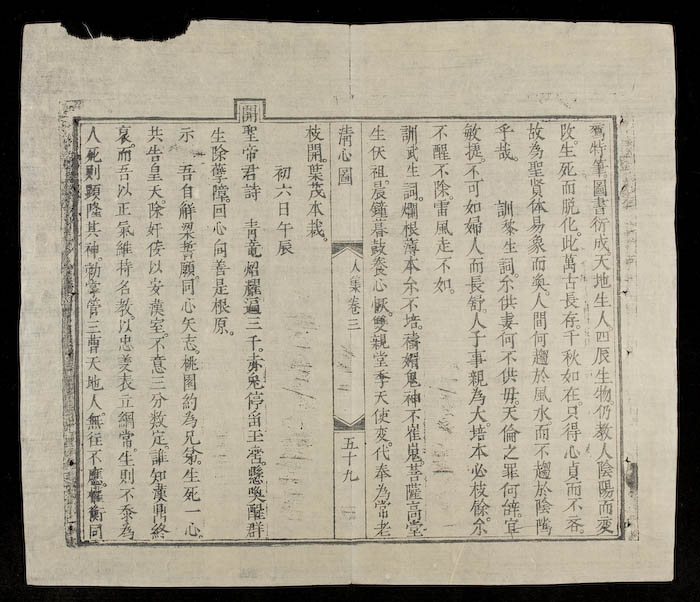 筆圖書衍成天地生人四辰生物仍教人陰陽而变
改生死而脱化。此萬古長存。千秋如在。只得心貞而不吝。
故為聖賢体易象而奐。人間何趨於風水而不趨於陰隲
乎哉。　訓黎生詞。尒供妻何不供母。天倫之罪何辞。宜
敏援。不可如婦人而長舒。人子事親為大。培本必枝餘。尒
不醒不除。雷風走不如。
訓武生詞。爛根薄本尒不培。禱婿鬼神不崔嵬。菩薩高堂
生伕祖。晨鐘暮鼓養心恢。雙親堂季天使变。代奉為常老
清心圖
人集卷三
五十九
枝開。葉茂本栽。
初六日午辰
開
聖帝君詩　青竜熖耀遍三千。赤兔停畄玉㳌。懸喚醒群
生除孽障。回心向善是根原。
示　吾自解梁誓願。同心矢志。桃園約為兄弟。生死一心。
共告皇天。除奸侫以安漢室。不意三分数定。誰知漢鼎終
衰。而吾以正氣維持名教。以忠義表立綱常。生則不忝為
人。死則顕隆其神。勅掌管三曹天地人。無往不應。權衡同